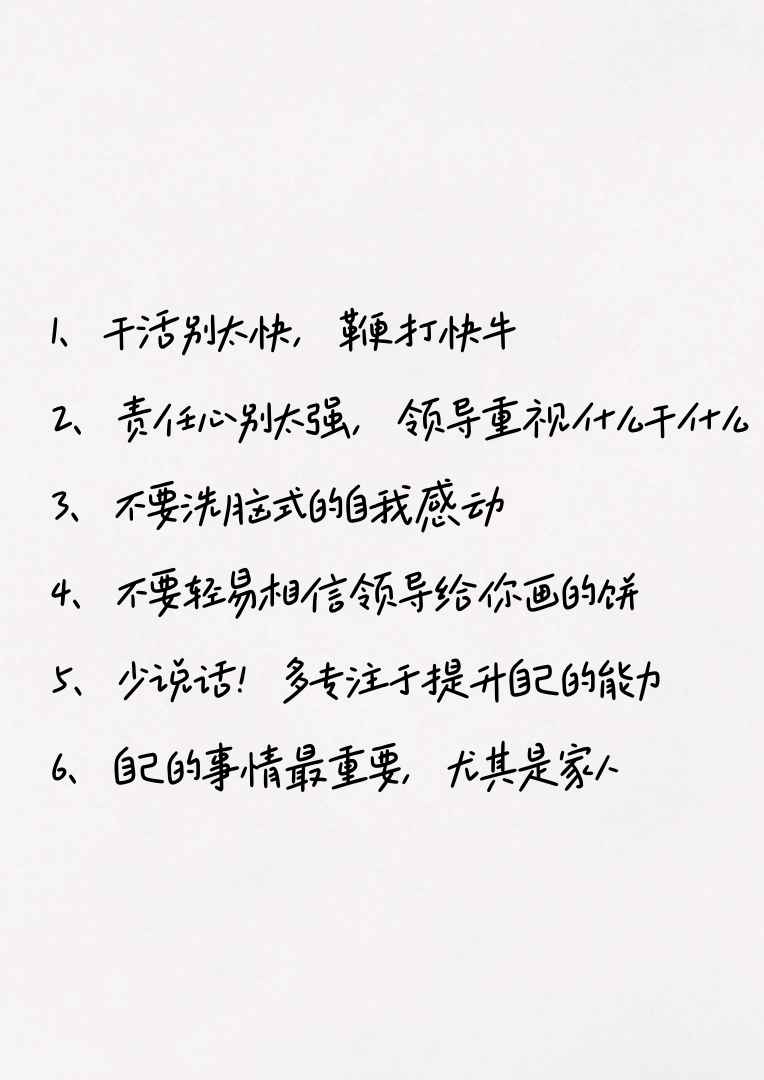 1、干活别太快，鞭打快牛
2、责任心别太强，领导重视什么干什么
3、不要洗脑式的自我感动
4、不要轻易相信领导给你画的饼
5、少说话！多专注于提升自己的能力
6、自己的事情最重要，尤其是家人